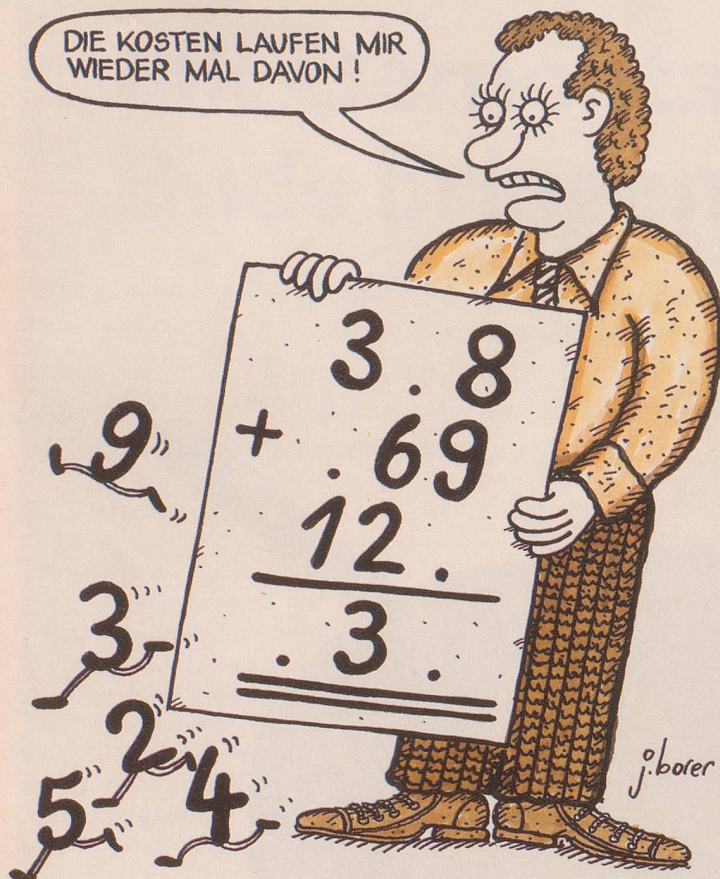 DIE KOSTEN LAUFEN MIR
WIEDER MAL DAVON!
3.8
+ .69
12.
.3.
9
3
2
4
5
j.borer